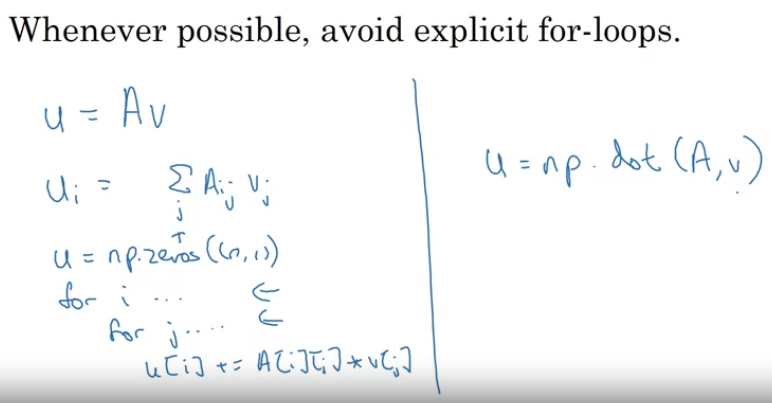 Whenever possible, avoid explicit for-loops.
u = Av
uᵢ = Σⱼ Aᵢⱼ vⱼ
u = np.zeros((n,1))
for i ... ←
for j .... ←
u[i] += A[i][j] * v[j]
u = np.dot(A,v)